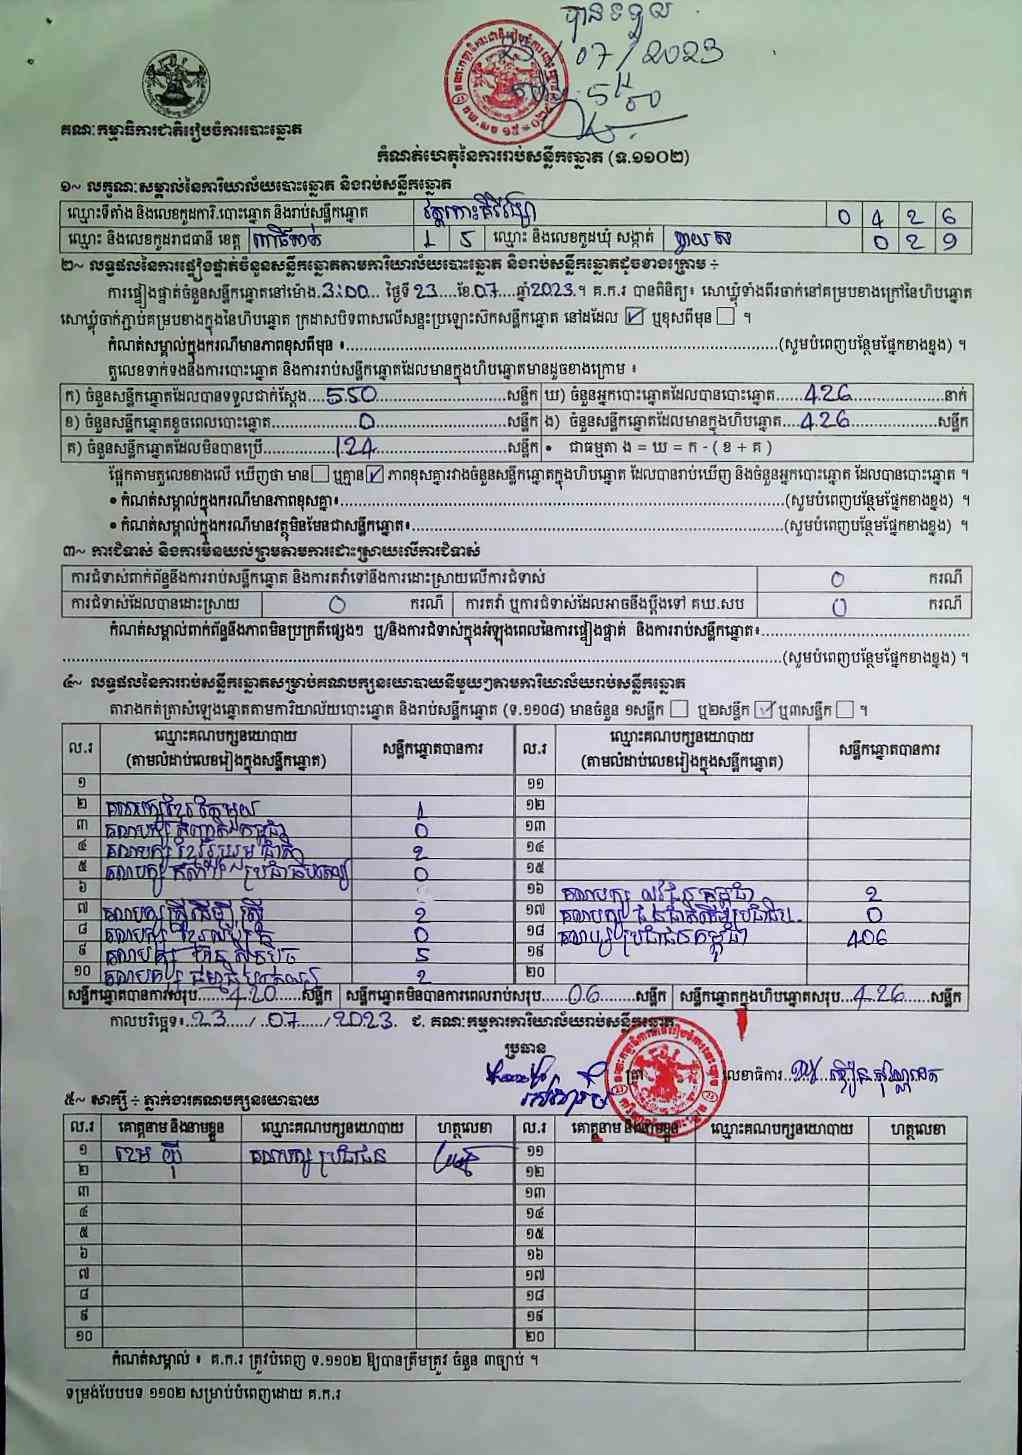 បានទទួល
23/07/2023
គណៈកម្មាធិការជាតិរៀបចំការបោះឆ្នោត
កំណត់ហេតុនៃការរាប់សន្លឹកឆ្នោត (ទ.១១០២)
១~ លក្ខណៈសម្គាល់នៃការិយាល័យបោះឆ្នោត និងរាប់សន្លឹកឆ្នោត
ឈ្មោះទីតាំង និងលេខកូដការិ.បោះឆ្នោត និងរាប់សន្លឹកឆ្នោត 0 4 2 6
ឈ្មោះ និងលេខកូដរាជធានី ខេត្ត ពោធិ៍សាត់ 1 5 ឈ្មោះ និងលេខកូដឃុំ សង្កាត់ 0 2 9
២~ លទ្ធផលនៃការផ្ទៀងផ្ទាត់ចំនួនសន្លឹកឆ្នោតតាមការិយាល័យបោះឆ្នោត និងរាប់សន្លឹកឆ្នោតដូចខាងក្រោម ÷
ការផ្ទៀងផ្ទាត់ចំនួនសន្លឹកឆ្នោតនៅម៉ោង.3:00... ថ្ងៃទី.23...ខែ.07....ឆ្នាំ.2023.។ គ.ក.រ បានពិនិត្យ៖ សោឃ្លុំទាំងពីរចាក់នៅគម្របខាងក្រៅនៃហិបឆ្នោត
សោឃ្លុំចាក់ភ្ជាប់គម្របខាងក្នុងនៃហិបឆ្នោត ក្រដាសបិទពាសលើសន្ទះប្រឡោះស៊កសន្លឹកឆ្នោត នៅដដែល ☑ ឬខុសពីមុន ☐ ។
កំណត់សម្គាល់ក្នុងករណីមានភាពខុសពីមុន ៖...(សូមបំពេញបន្ថែមផ្នែកខាងខ្នង) ។
តួលេខទាក់ទងនឹងការបោះឆ្នោត និងការរាប់សន្លឹកឆ្នោតដែលមានក្នុងហិបឆ្នោតមានដូចខាងក្រោម ៖
ក) ចំនួនសន្លឹកឆ្នោតដែលបានទទួលជាក់ស្តែង....550....សន្លឹក ឃ) ចំនួនអ្នកបោះឆ្នោតដែលបានបោះឆ្នោត....426....នាក់
ខ) ចំនួនសន្លឹកឆ្នោតខូចពេលបោះឆ្នោត....0....សន្លឹក ង) ចំនួនសន្លឹកឆ្នោតដែលមានក្នុងហិបឆ្នោត....426....សន្លឹក
គ) ចំនួនសន្លឹកឆ្នោតដែលមិនបានប្រើ....124....សន្លឹក • ជាធម្មតា ង = ឃ = ក - ( ខ + គ )
ផ្អែកតាមតួលេខខាងលើ ឃើញថា មាន ☐ ឬគ្មាន ☑ ភាពខុសគ្នារវាងចំនួនសន្លឹកឆ្នោតក្នុងហិបឆ្នោត ដែលបានរាប់ឃើញ និងចំនួនអ្នកបោះឆ្នោត ដែលបានបោះឆ្នោត ។
• កំណត់សម្គាល់ក្នុងករណីមានភាពខុសគ្នា៖...(សូមបំពេញបន្ថែមផ្នែកខាងខ្នង) ។
• កំណត់សម្គាល់ក្នុងករណីមានវត្ថុមិនមែនជាសន្លឹកឆ្នោត៖...(សូមបំពេញបន្ថែមផ្នែកខាងខ្នង) ។
៣~ ការជំទាស់ និងការមិនយល់ព្រមតាមការដោះស្រាយលើការជំទាស់
ការជំទាស់ពាក់ព័ន្ធនឹងការរាប់សន្លឹកឆ្នោត និងការតវ៉ាទៅនឹងការដោះស្រាយលើការជំទាស់ 0 ករណី
ការជំទាស់ដែលបានដោះស្រាយ 0 ករណី ការតវ៉ា ឬការជំទាស់ដែលអាចនឹងប្តឹងទៅ គឃ.សប 0 ករណី
កំណត់សម្គាល់ពាក់ព័ន្ធនឹងភាពមិនប្រក្រតីផ្សេងៗ ឬ/និងការជំទាស់ក្នុងអំឡុងពេលនៃការផ្ទៀងផ្ទាត់ និងការរាប់សន្លឹកឆ្នោត៖...
...(សូមបំពេញបន្ថែមផ្នែកខាងខ្នង) ។
៤~ លទ្ធផលនៃការរាប់សន្លឹកឆ្នោតសម្រាប់គណបក្សនយោបាយនីមួយៗតាមការិយាល័យរាប់សន្លឹកឆ្នោត
តារាងកត់ត្រាសំឡេងឆ្នោតតាមការិយាល័យបោះឆ្នោត និងរាប់សន្លឹកឆ្នោត (ទ.១១០៨) មានចំនួន ១សន្លឹក ☐ ឬ២សន្លឹក ☑ ឬ៣សន្លឹក ☐ ។
ល.រ ឈ្មោះគណបក្សនយោបាយ (តាមលំដាប់លេខរៀងក្នុងសន្លឹកឆ្នោត) សន្លឹកឆ្នោតបានការ ល.រ ឈ្មោះគណបក្សនយោបាយ (តាមលំដាប់លេខរៀងក្នុងសន្លឹកឆ្នោត) សន្លឹកឆ្នោតបានការ
១ ១១
២ គណបក្សខ្មែរតែមួយ 1 ១២
៣ គណបក្ស កម្ពុជា 0 ១៣
៤ គណបក្ស ខ្មែររួបរួមជាតិ 2 ១៤
៥ គណបក្ស ប្រជាធិបតេយ្យ 0 ១៥
៦ ១៦ គណបក្ស កម្ពុជា 2
៧ គណបក្សស្ត្រីដើម្បីស្ត្រី 2 ១៧ គណបក្ស 0
៨ គណបក្ស 0 ១៨ គណបក្សប្រជាជនកម្ពុជា 406
៩ គណបក្ស ហ៊្វុនស៊ិនប៉ិច 5 ១៩
១០ គណបក្ស 2 ២០
សន្លឹកឆ្នោតបានការសរុប....420....សន្លឹក សន្លឹកឆ្នោតមិនបានការពេលរាប់សរុប....06....សន្លឹក សន្លឹកឆ្នោតក្នុងហិបឆ្នោតសរុប...426...សន្លឹក
កាលបរិច្ឆេទ៖..23..../..07..../2023. ជ. គណៈកម្មការការិយាល័យរាប់សន្លឹកឆ្នោត
ប្រធាន
ត្រា លេខាធិការ
៥~ សាក្សី ÷ ភ្នាក់ងារគណបក្សនយោបាយ
ល.រ គោត្តនាម និងនាមខ្លួន ឈ្មោះគណបក្សនយោបាយ ហត្ថលេខា ល.រ គោត្តនាម និងនាមខ្លួន ឈ្មោះគណបក្សនយោបាយ ហត្ថលេខា
១ គណបក្ស ប្រជាជន ១១
២ ១២
៣ ១៣
៤ ១៤
៥ ១៥
៦ ១៦
៧ ១៧
៨ ១៨
៩ ១៩
១០ ២០
កំណត់សម្គាល់ ៖ គ.ក.រ ត្រូវបំពេញ ទ.១១០២ ឱ្យបានត្រឹមត្រូវ ចំនួន ៣ច្បាប់ ។
ទម្រង់បែបបទ ១១០២ សម្រាប់បំពេញដោយ គ.ក.រ